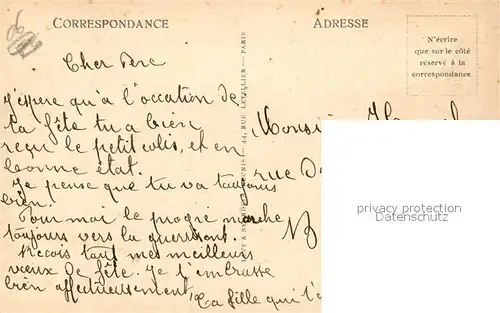 CORRESPONDANCE
ADRESSE
N'écrire
que sur le côté
réservé à la
correspondance
Cher Père
J'espère qu'à l'occation de
ta fête tu a bien
reçu le petit colis, et en
bonne état.
Je pense que tu va toujours
bien.
Pour moi le progré marche
toujours vers la guerisont.
Recois tout mes meilleurs
vœux de fête. Je t'embrasse
bien affectueusement,
Ta fille qui t'
LEVY & NEURDEIN RÉUNIS - 44, RUE LETELLIER - PARIS
rue
privacy protection
Datenschutz